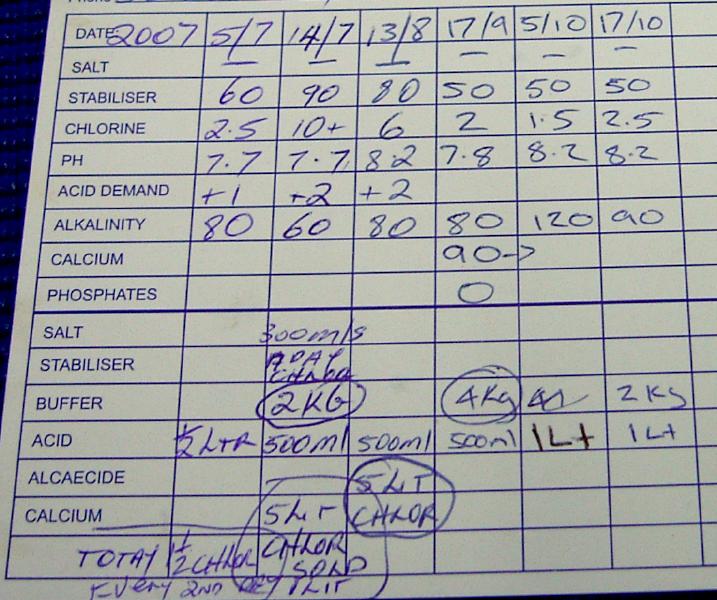 DATE 2007 5/7 14/7 13/8 17/9 5/10 17/10
SALT — — — — — —
STABILISER 60 90 80 50 50 50
CHLORINE 2.5 10+ 6 2 1.5 2.5
PH 7.7 7.7 8.2 7.8 8.2 8.2
ACID DEMAND +1 +2 +2
ALKALINITY 80 60 80 80 120 90
CALCIUM 90->
PHOSPHATES 0
SALT 300m/s
STABILISER A DAY
CHLOR
BUFFER 2KG 4Kg 2Kg
ACID 1/2 LTR 500ml 500ml 500ml 1Lt 1Lt
ALCAECIDE 5 LIT
CALCIUM 5 LIT CHLOR
TOTAY 1 1/2 CHLOR CHLOR
SOLD
EVERY 2ND DAY 1 LIT